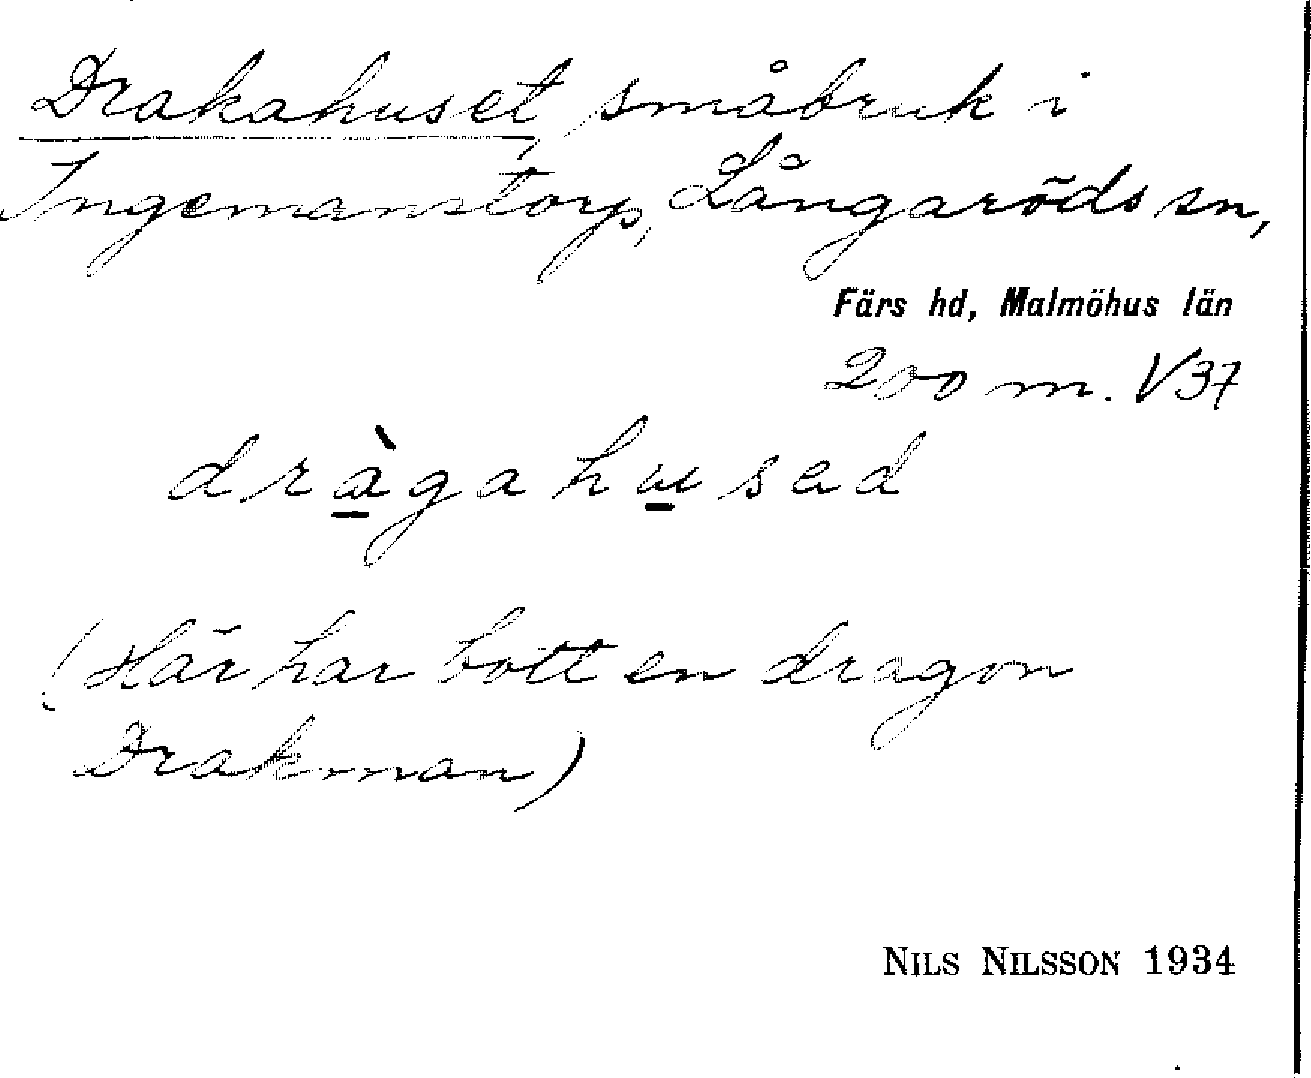 Drakahuset, småbruk i
Ingemanstorp, Långaröds sn,
Färs hd, Malmöhus län
200 m. V37
dràgahusad
(Här har bott en dragon
Drakman)
NILS NILSSON 1934